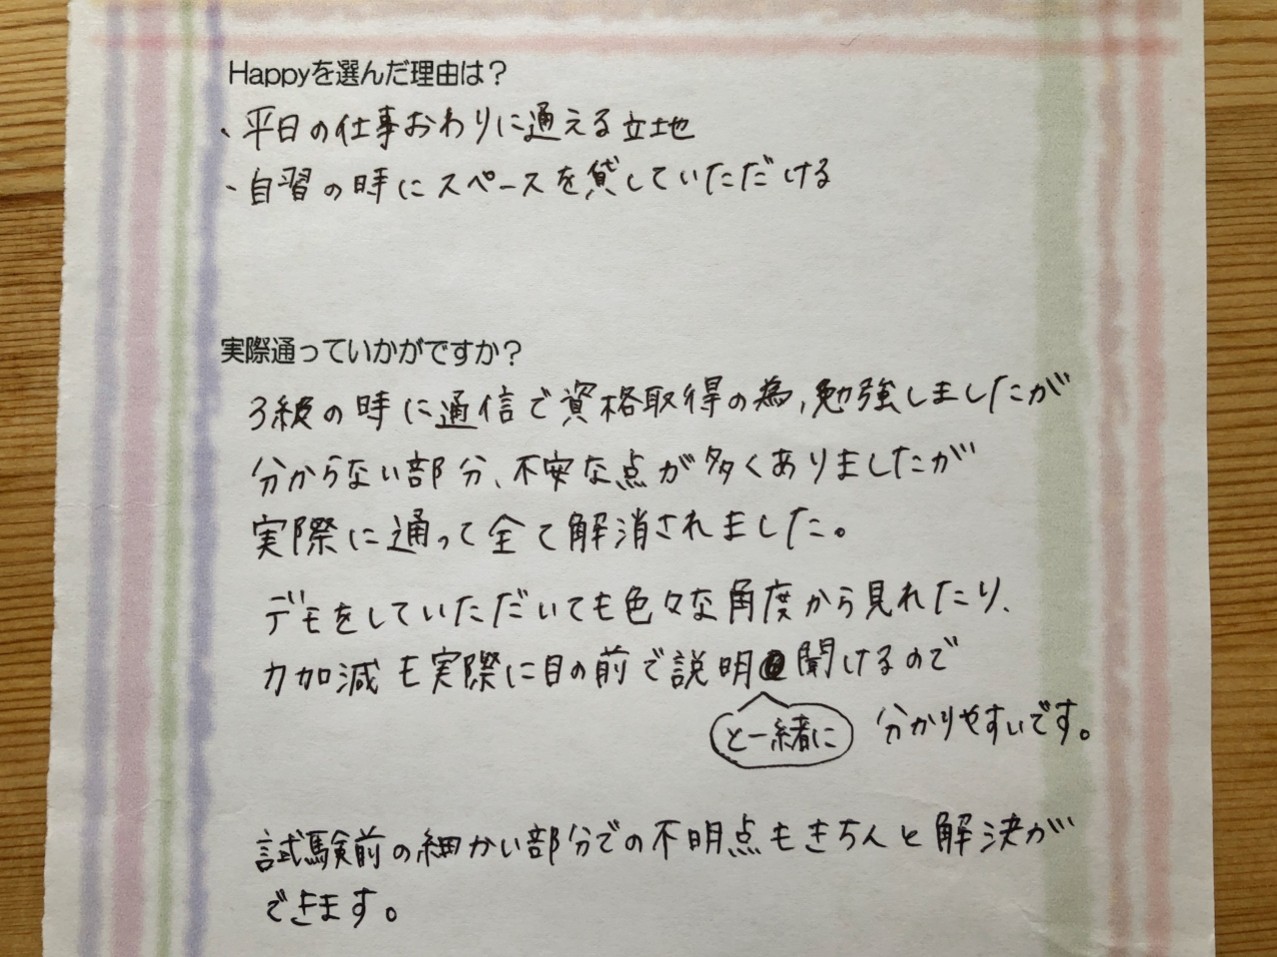 Happyを選んだ理由は？
・平日の仕事おわりに通える立地
・自習の時にスペースを貸していただける
実際通っていかがですか？
3級の時に通信で資格取得の為,勉強しましたが
分からない部分、不安な点が多くありましたが
実際に通って全て解消されました。
デモをしていただいても色々な角度から見れたり、
力加減も実際に目の前で説明と一緒に聞けるので
分かりやすいです。
試験前の細かい部分での不明点もきちんと解決が
できます。